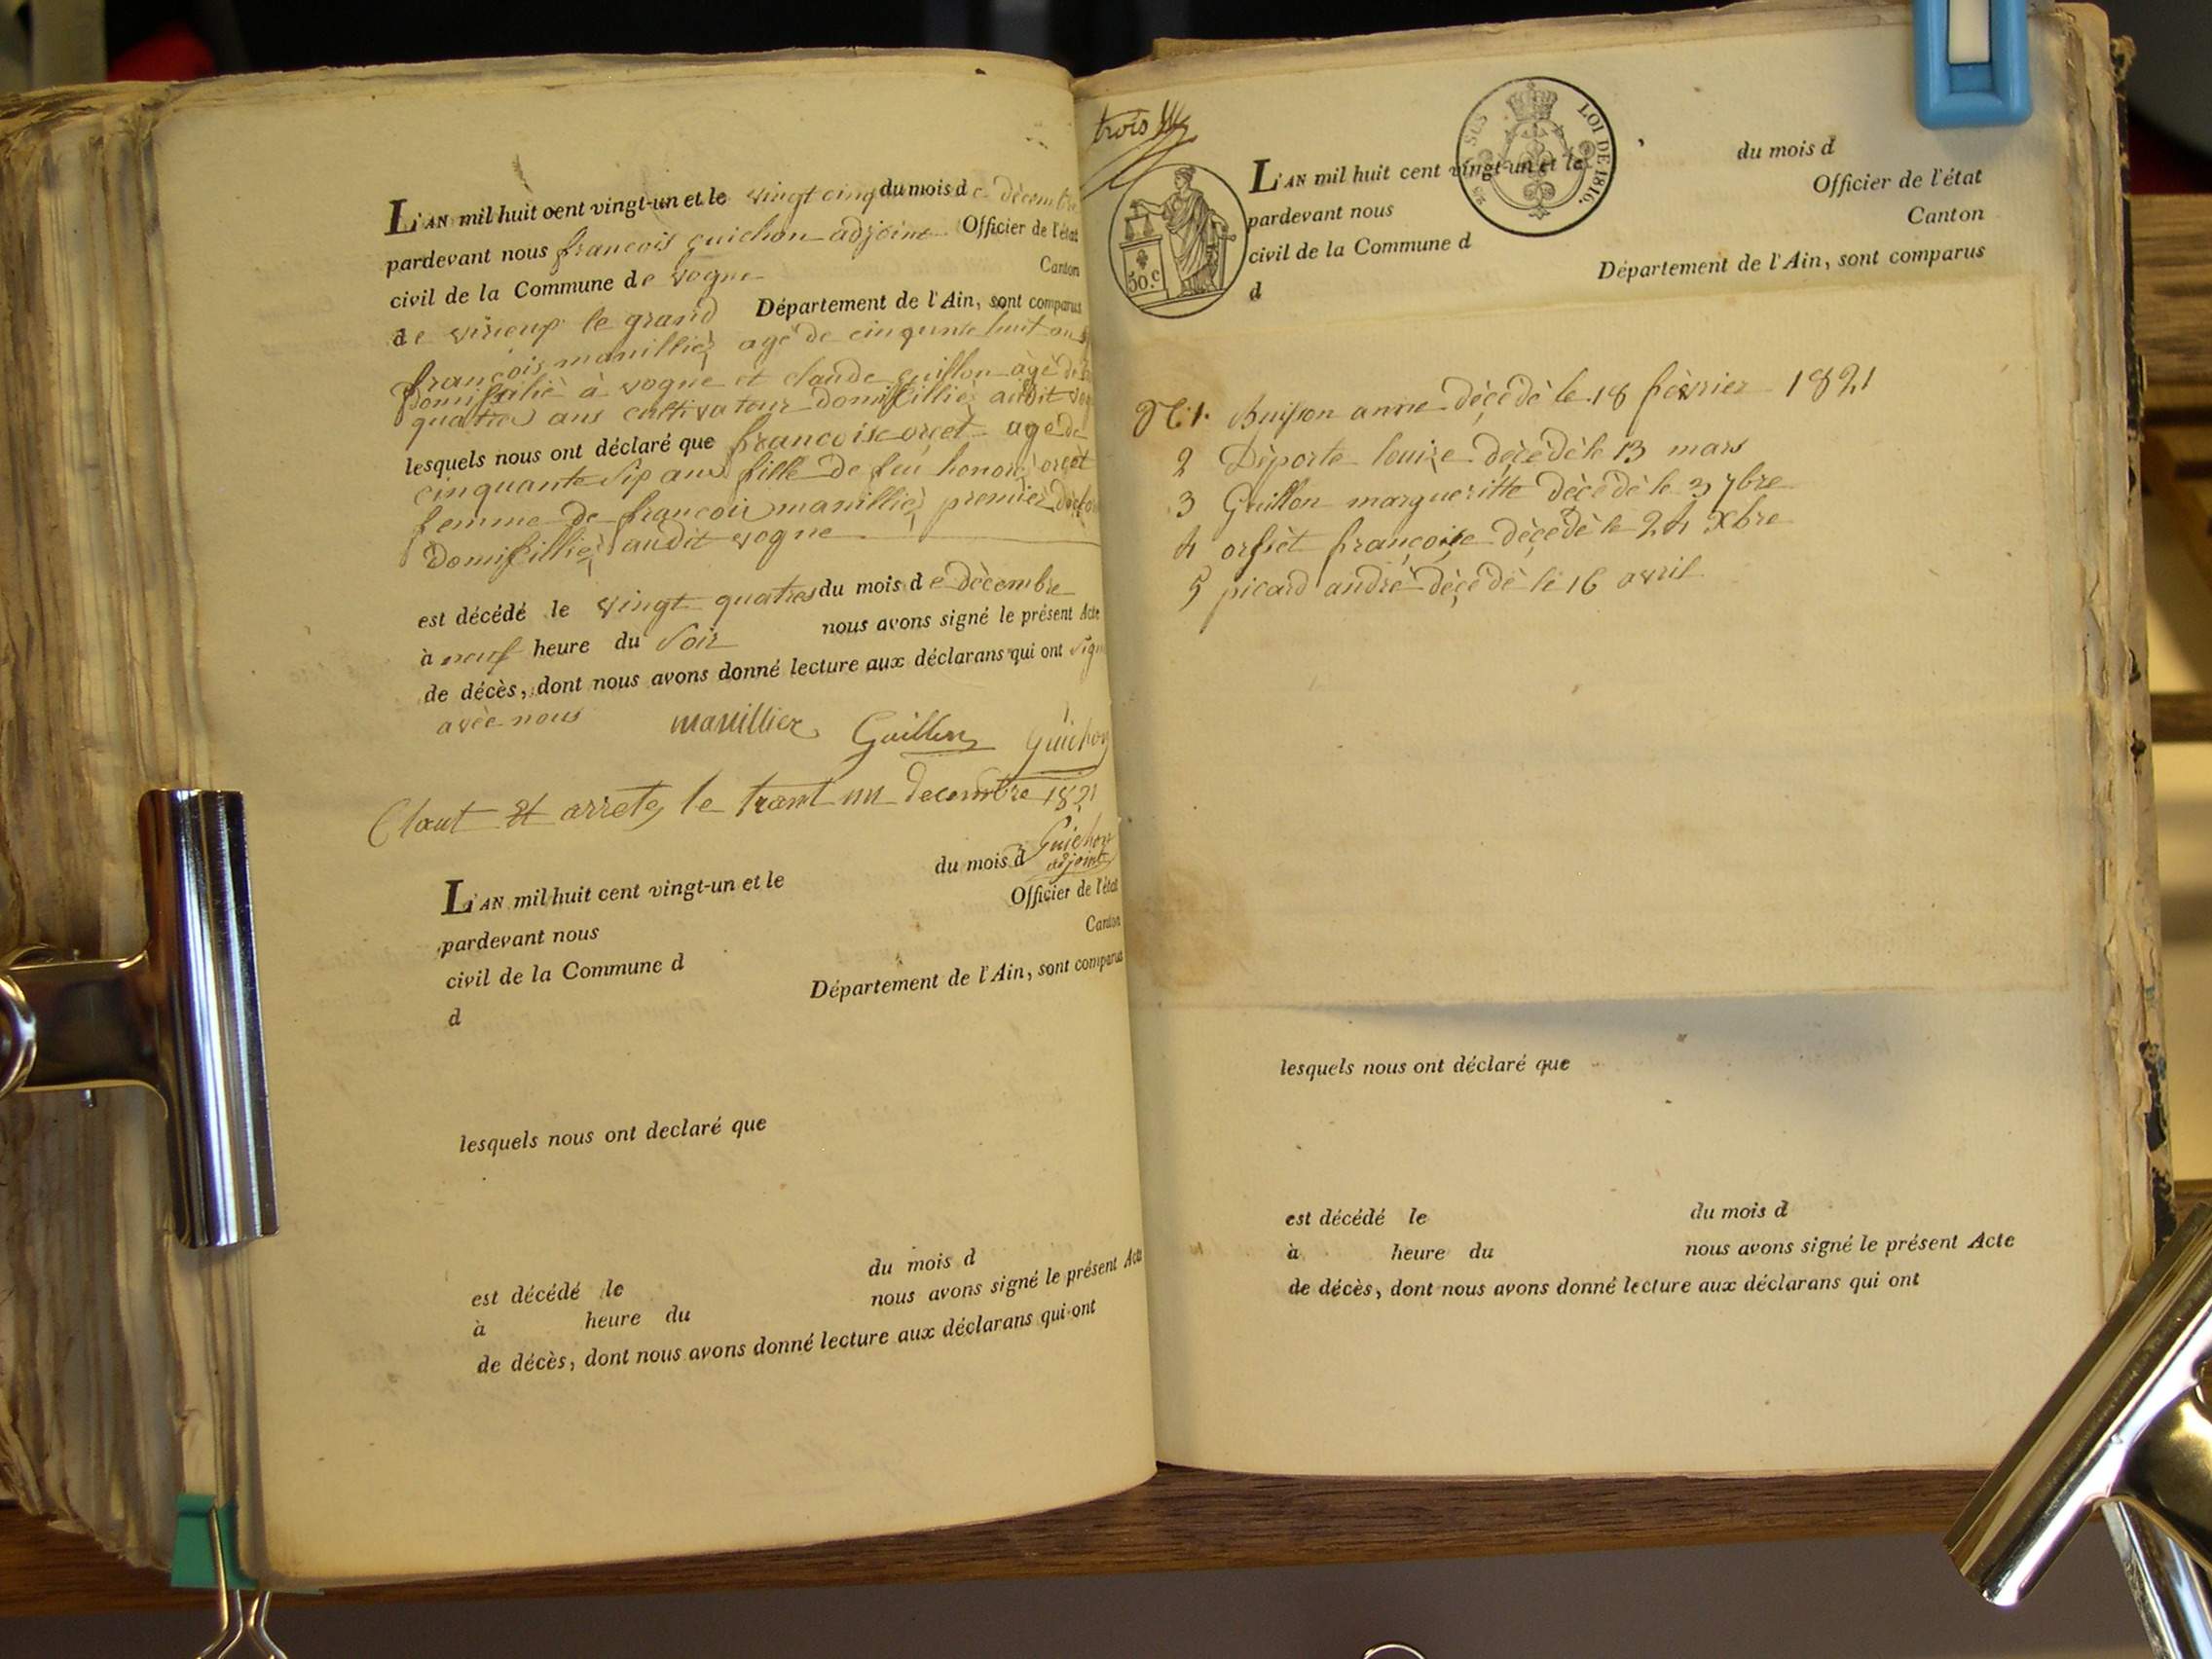 L'AN mil huit cent vingt-un et le vingt cinq du mois de décembre
pardevant nous françois guichon adjoint Officier de l'état
civil de la Commune de vogne Canton
de virieup le grand Département de l'Ain, sont comparus
françois manillier agé de cinquante huit ans
Domissilié à vogne et claude guillon agé de
quatre ans cultivateur Domissillié audit
lesquels nous ont déclaré que francoise orcet agé de
cinquante sip ans fille de feu honoré orcet
femme de francoii manillier premier
Domissillié audit vogne
est décédé le vingt quatre du mois de décembre
à neuf heure du soir nous avons signé le présent Acte
de décès, dont nous avons donné lecture aux déclarans qui ont signé
avèc nous manillier Guillon Guichon
Claut Et arrete le trant un decembre 1821
Guichon
adjoint
L'AN mil huit cent vingt-un et le du mois d
pardevant nous Officier de l'état
civil de la Commune d Canton
d Département de l'Ain, sont comparus
lesquels nous ont declaré que
est décédé le du mois d
à heure du nous avons signé le présent Acte
de décès, dont nous avons donné lecture aux déclarans qui ont
trois
50.c
SUS LOI DE 1816.
L'AN mil huit cent vingt-un et le du mois d
pardevant nous Officier de l'état
civil de la Commune d Canton
d Département de l'Ain, sont comparus
N.1. Buisson anne décédé le 18 février 1821
2 Déporte louize décédé le 13 mars
3 Guillon margueritte décédé le 3 7bre
4 orsset françoise décédé le 24 Xbre
5 picard andré décédé le 16 avril
lesquels nous ont déclaré que
est décédé le du mois d
à heure du nous avons signé le présent Acte
de décès, dont nous avons donné lecture aux déclarans qui ont